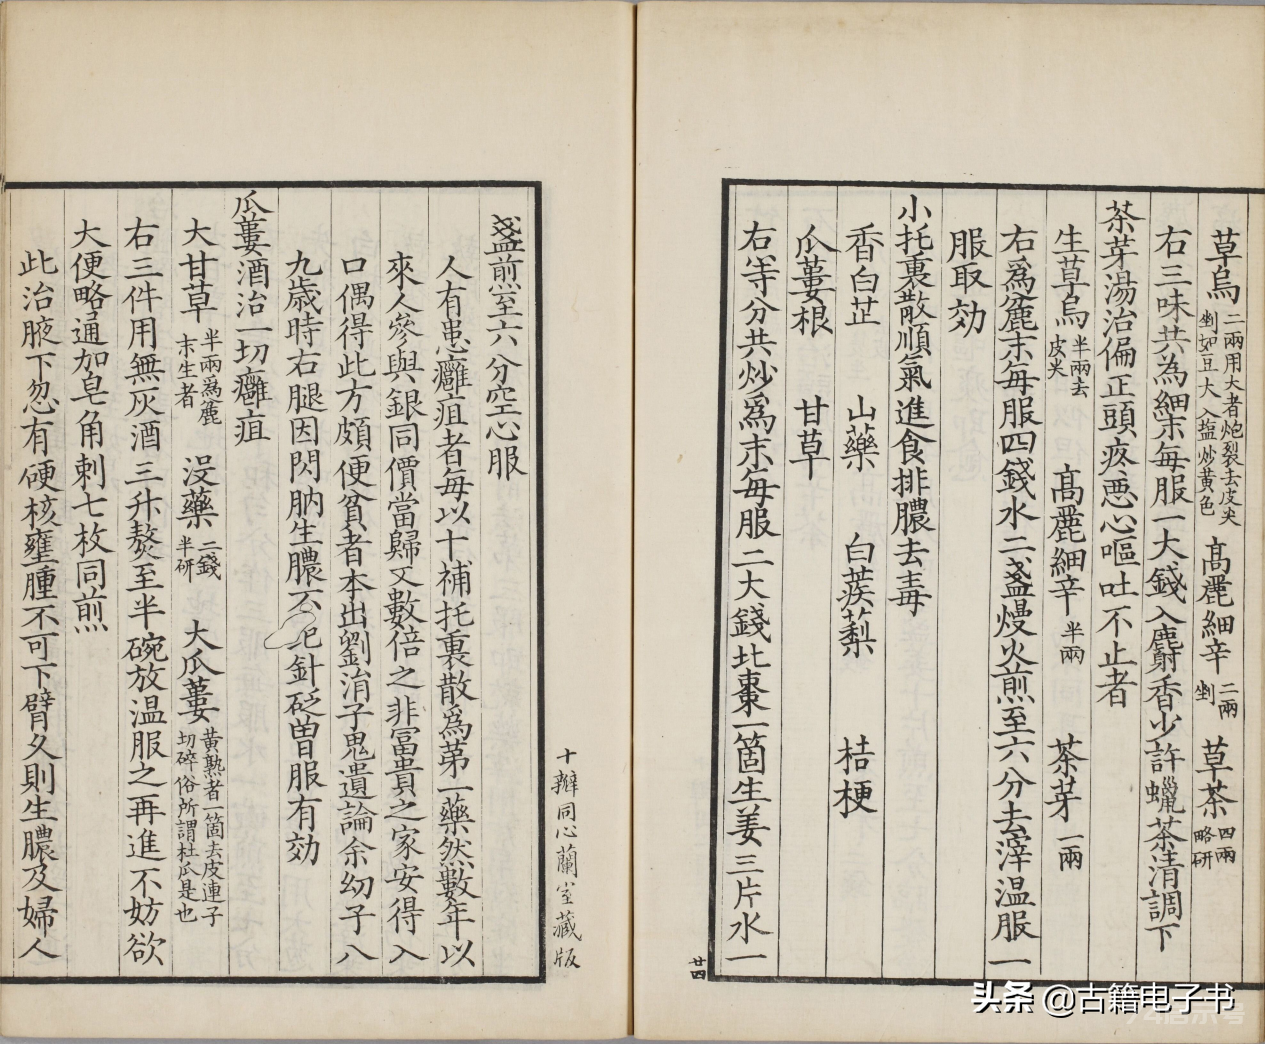 草烏二兩用大者炮裂去皮尖剉如豆大入塩炒黄色 髙麗細辛二兩剉 草茶四兩略研
右三味共為細末每服一大錢入麝香少許蠟茶清調下
茶芽湯治偏正頭疼惡心嘔吐不止者
生草烏半兩去皮尖 髙麗細辛半兩 茶芽一兩
右爲麄末每服四錢水二盞熳火煎至六分去滓温服一
服取効
小托裏散順氣進食排膿去毒
香白芷 山藥 白蒺蔾 桔梗
瓜蔞根 甘草
右等分共炒爲末每服二大錢北棗一箇生姜三片水一
廿四
盞煎至六分空心服
人有患癰疽者每以十補托裏散爲第一藥然數年以
來人參與銀同價當歸又數倍之非冨貴之家安得入
口偶得此方頗便貧者本出劉涓子鬼遺論余幼子八
九歳時右腿因閃肭生膿不犯針砭曽服有効
瓜蔞酒治一切癰疽
大甘草半兩爲麄末生者 没藥二錢半研 大瓜蔞黄熟者一箇去皮連子切碎俗所謂杜瓜是也
右三件用無灰酒三升熬至半碗放温服之再進不妨欲
大便略通加皂角刺七枚同煎
此治腋下忽有硬核壅腫不可下臂久則生膿及婦人
十瓣同心蘭室藏版
头条 @古籍电子书